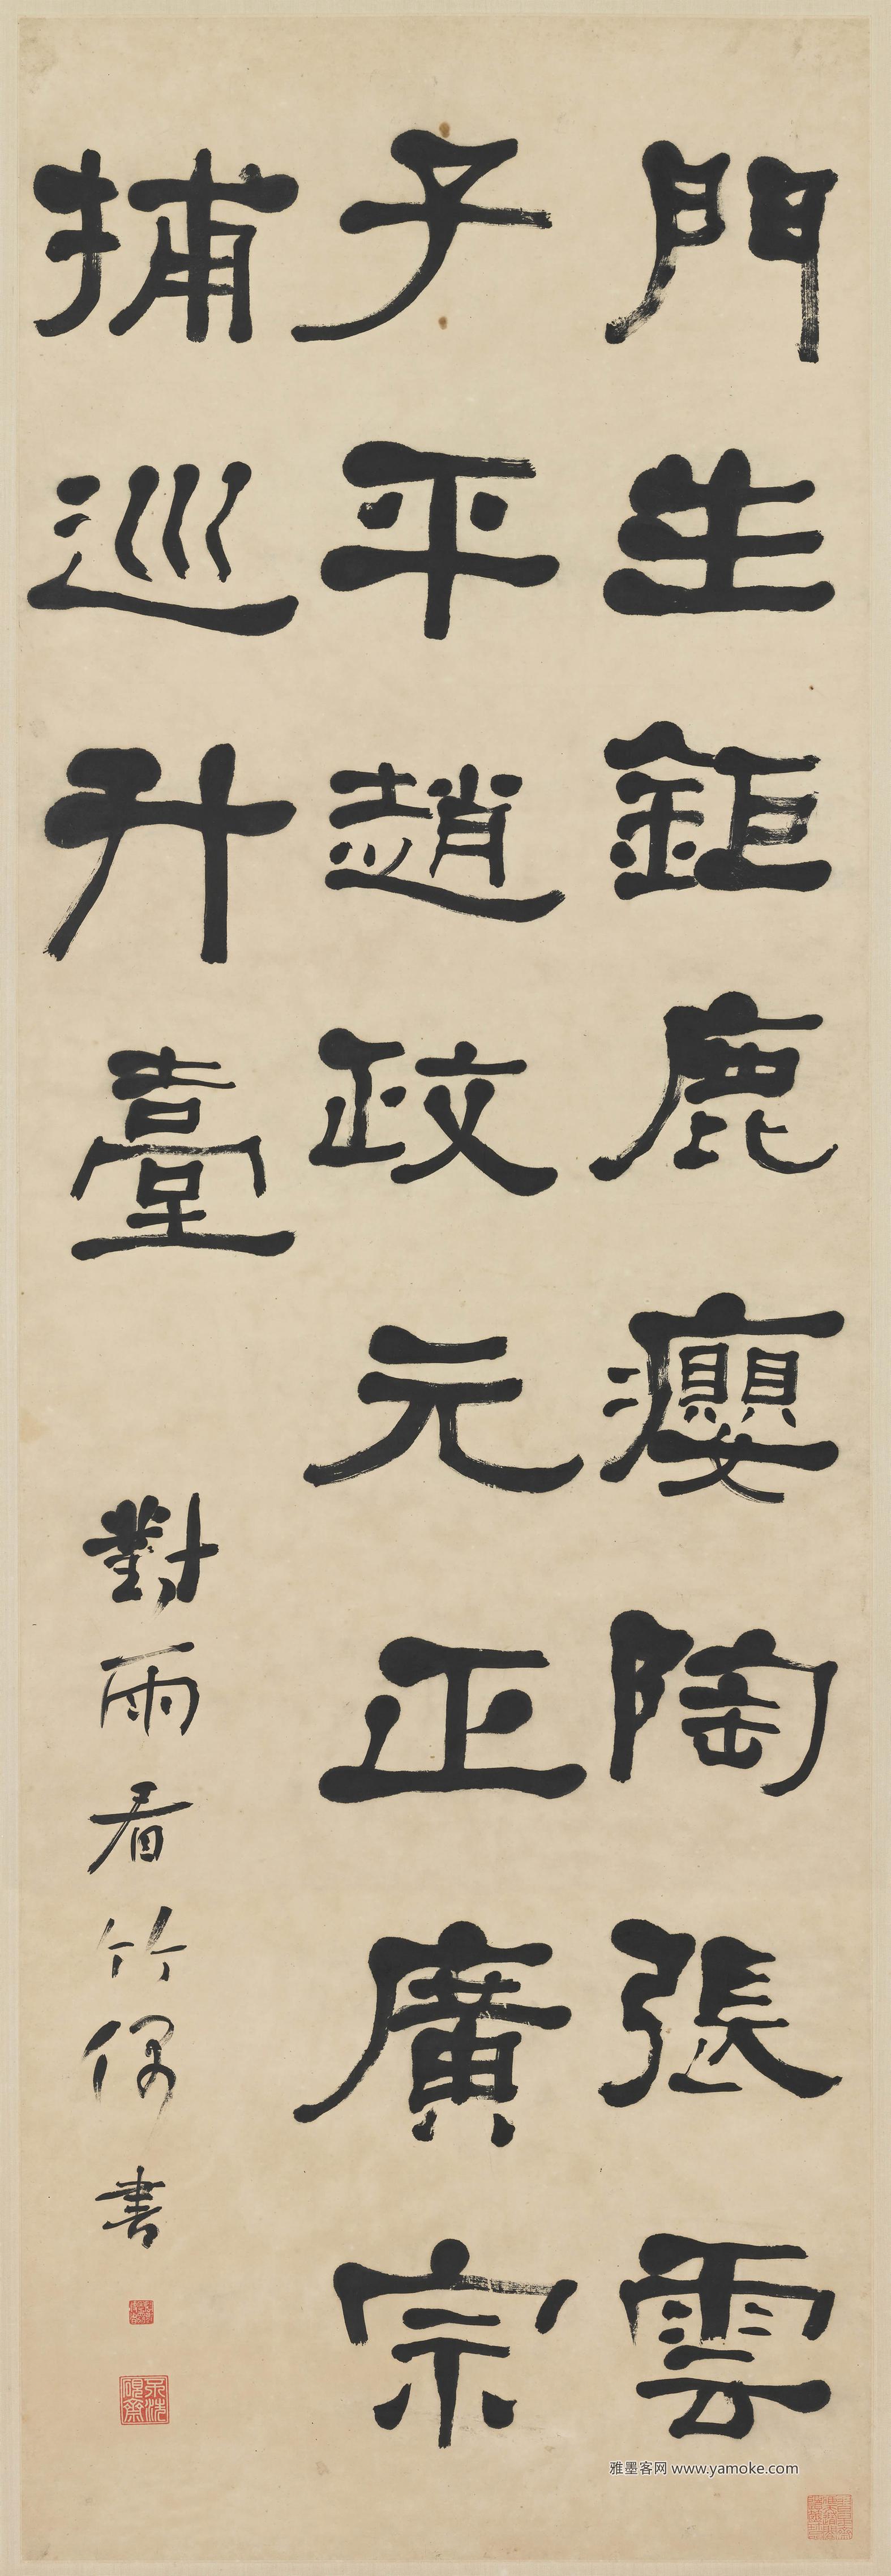 門生鉅鹿癭陶張雲
子平趙政元正廣宗
捕巡升臺
對雨看竹偶書
雅墨客网 www.yamoke.com